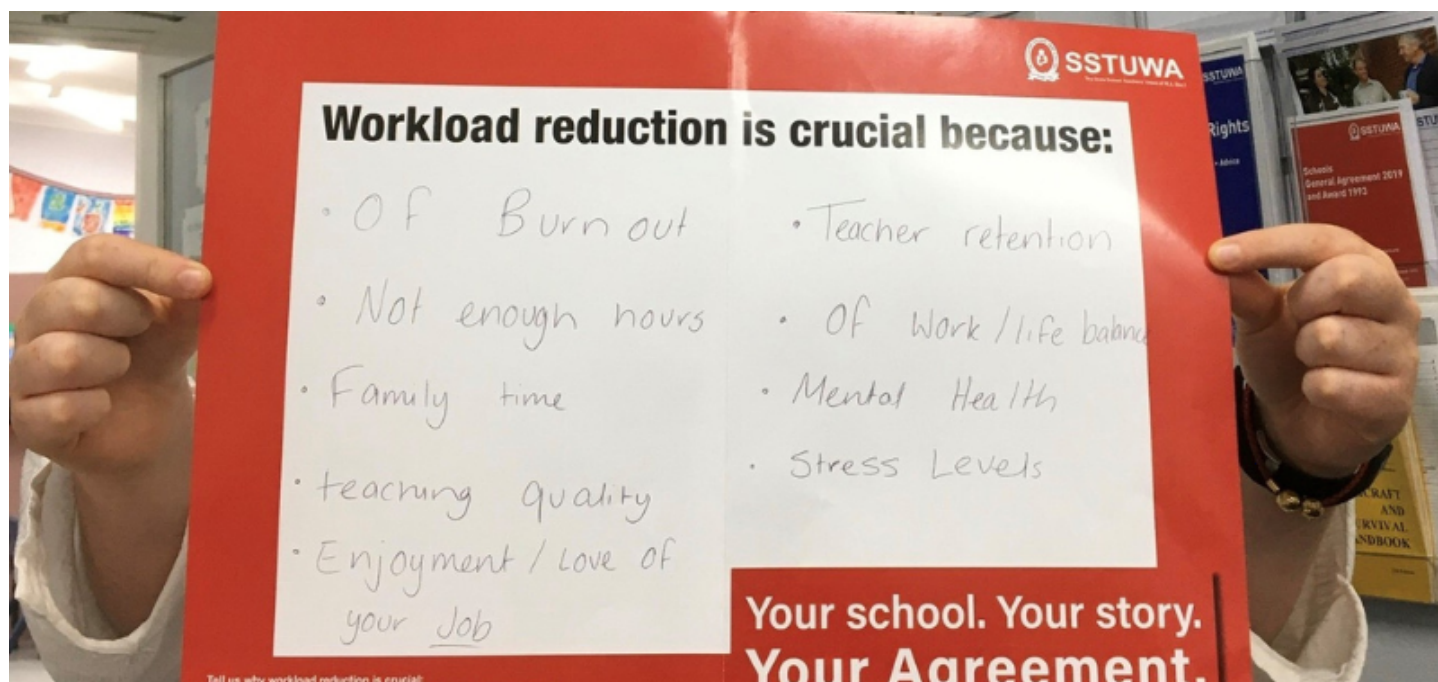 SSTUWA
Workload reduction is crucial because:
• Of Burn out
• Not enough hours
• Family time
• teaching quality
• Enjoyment / Love of
your Job
• Teacher retention
• Of Work / life balance
• Mental Health
• Stress Levels
Your school. Your story.
Your Agreement.
Tell us why workload reduction is crucial:
SSTUWA
Rights
• Advice
SSTUWA
Schools
General Agreement 2019
and Award 1993
STU
CRAFT
AND
URVIVAL
ANDBOOK